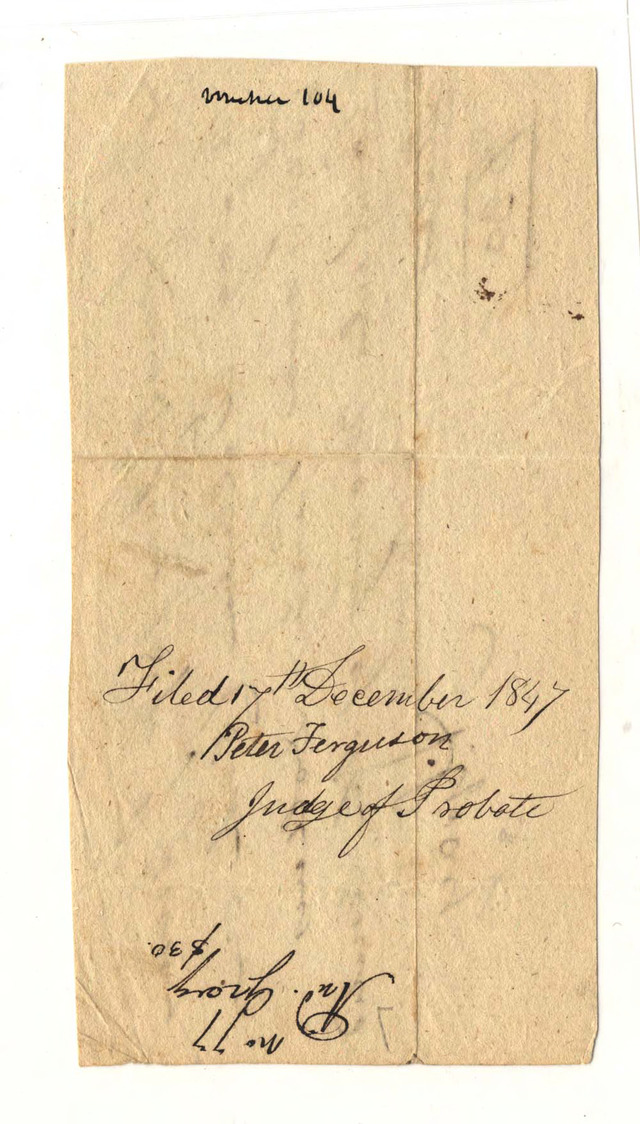 Voucher 104
Filed 17th December 1847
Peter Ferguson
Judge of Probate
No 77
$30.